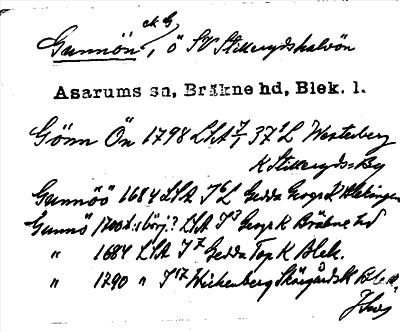 ek G
Gunnön, ö SV Stillerydshalvön
Asarums sn, Bräkne hd, Blek. l.
Gönn Ön 1798 LSA 37 L Westerberg
K Stilleryds By
Gunnöö 1684 LSA J L Gedda Geogr K Blekingen
Gunnö 1700 t. börj.? LSA J Geogr K Bräkne hd
" 1684 LSA J 7 Gedda Top K Blek.
" 1790 " J 17 Wickenberg Skärgårds K Blek.